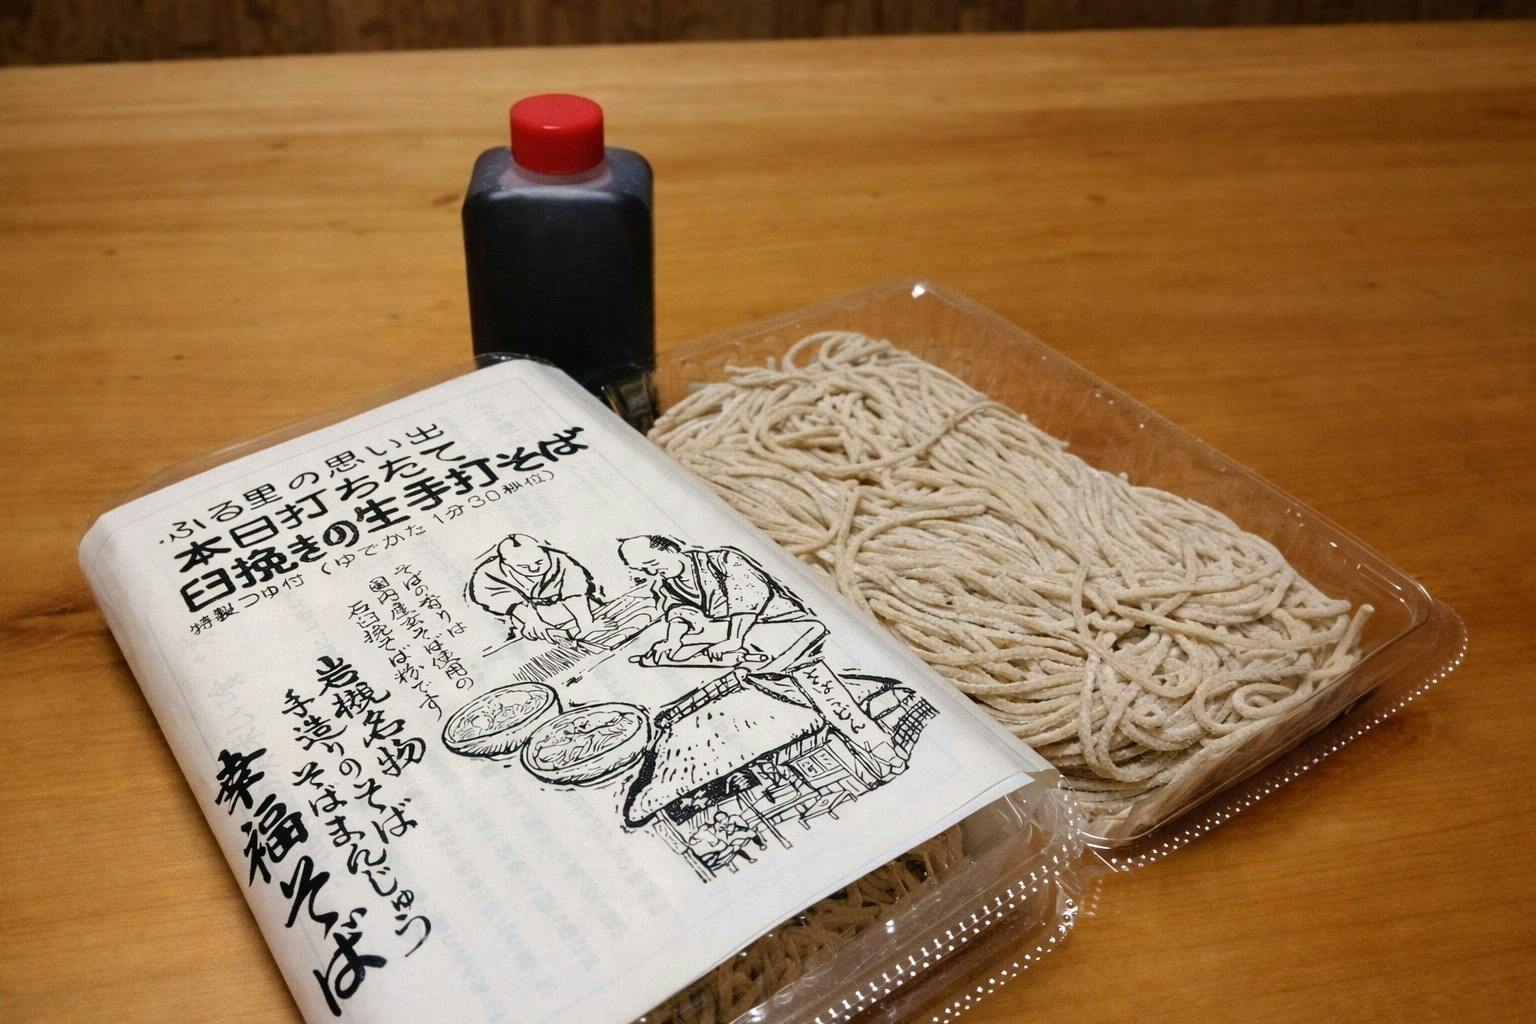 ふる里の思い出
本日打ちたて
臼挽きの生手打そば
特製つゆ付（ゆでかた 1分30秒位）
そばの香りは
国内産玄そば使用の
石臼挽そば粉です
岩槻名物
手造りのそばまんじゅう
幸福そば